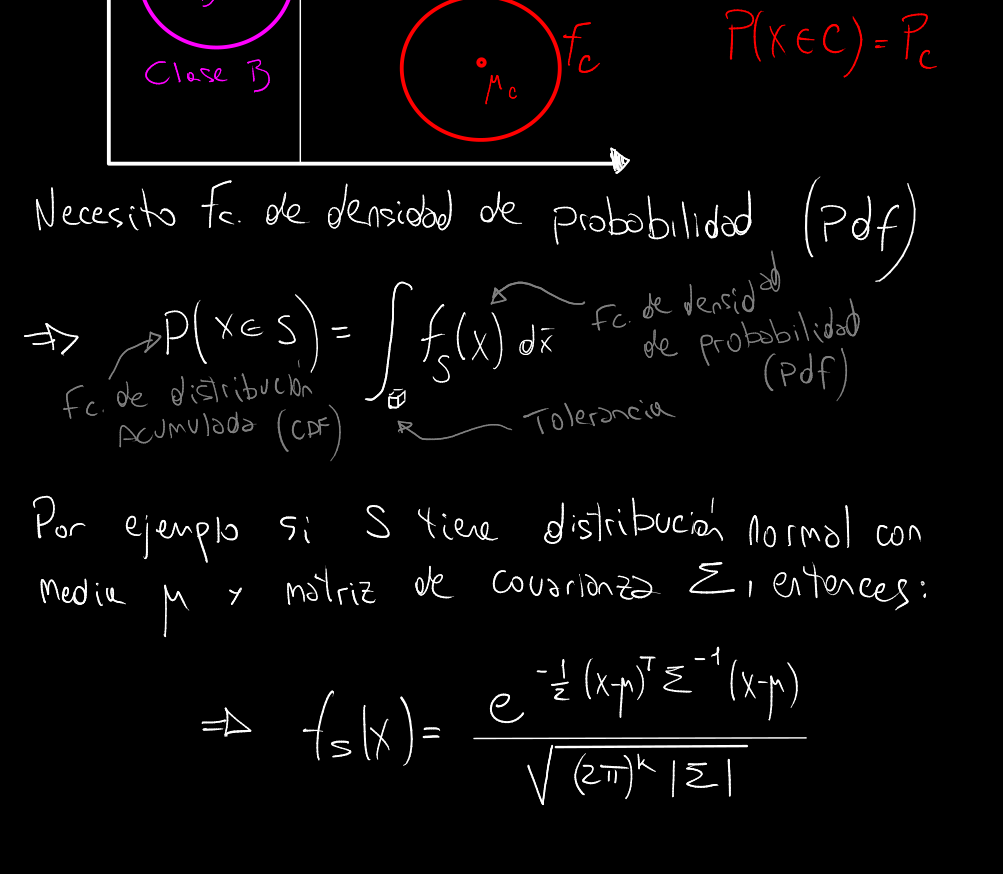 Clase B
μ_c
f_c
P(X∈C) = P_c
Necesito fc. de densidad de probabilidad (Pdf)
⇒ P(X∈S) = ∫ f_S(x) dx̄
Fc. de densidad
de probabilidad
(Pdf)
Fc. de distribución
Acumulada (CDF)
Tolerancia
Por ejemplo si S tiene distribución normal con
media μ y matriz de covarianza Σ, entonces:
⇒ f_S(x) = e^{-1/2 (x-μ)^T Σ^{-1} (x-μ)} / √((2π)^k |Σ|)